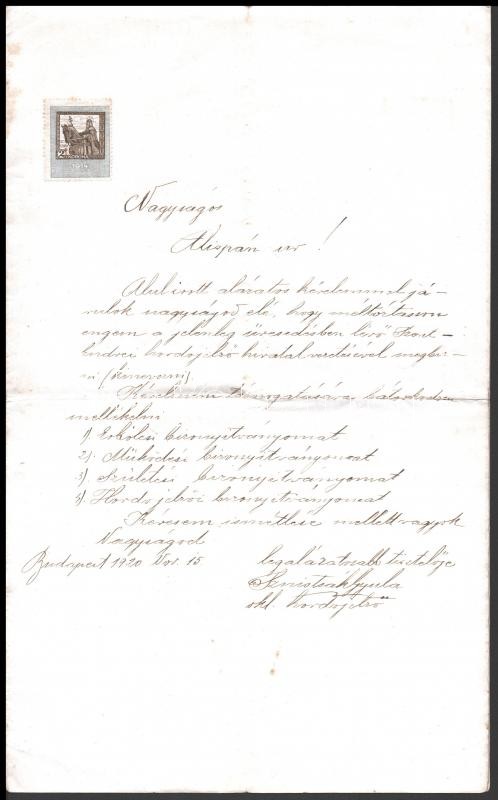 2 KORONA
1914
Nagyságos
Alispán úr!
Alulirott alázatos kérelemmel já-
rulok nagyságod elé, hogy méltóztasson
engem a jelenleg üresedésben lévő Szent-
endrei hordójelző hivatal vezetésével megbiz-
ni (kinevezni).
Kérelmem támogatására bátorkodom
mellékelni
1). Erkölcsi bizonyítványomat
2). Működési bizonyítványomat
3). Születési bizonyítványomat
4). Hordo jelzői bizonyítványomat
Kérésem ismétlése mellett vagyok
Nagyságod
Budapest 1920 Nov. 15
legalázatosabb tisztelője
Gyula
okl. hordojelző